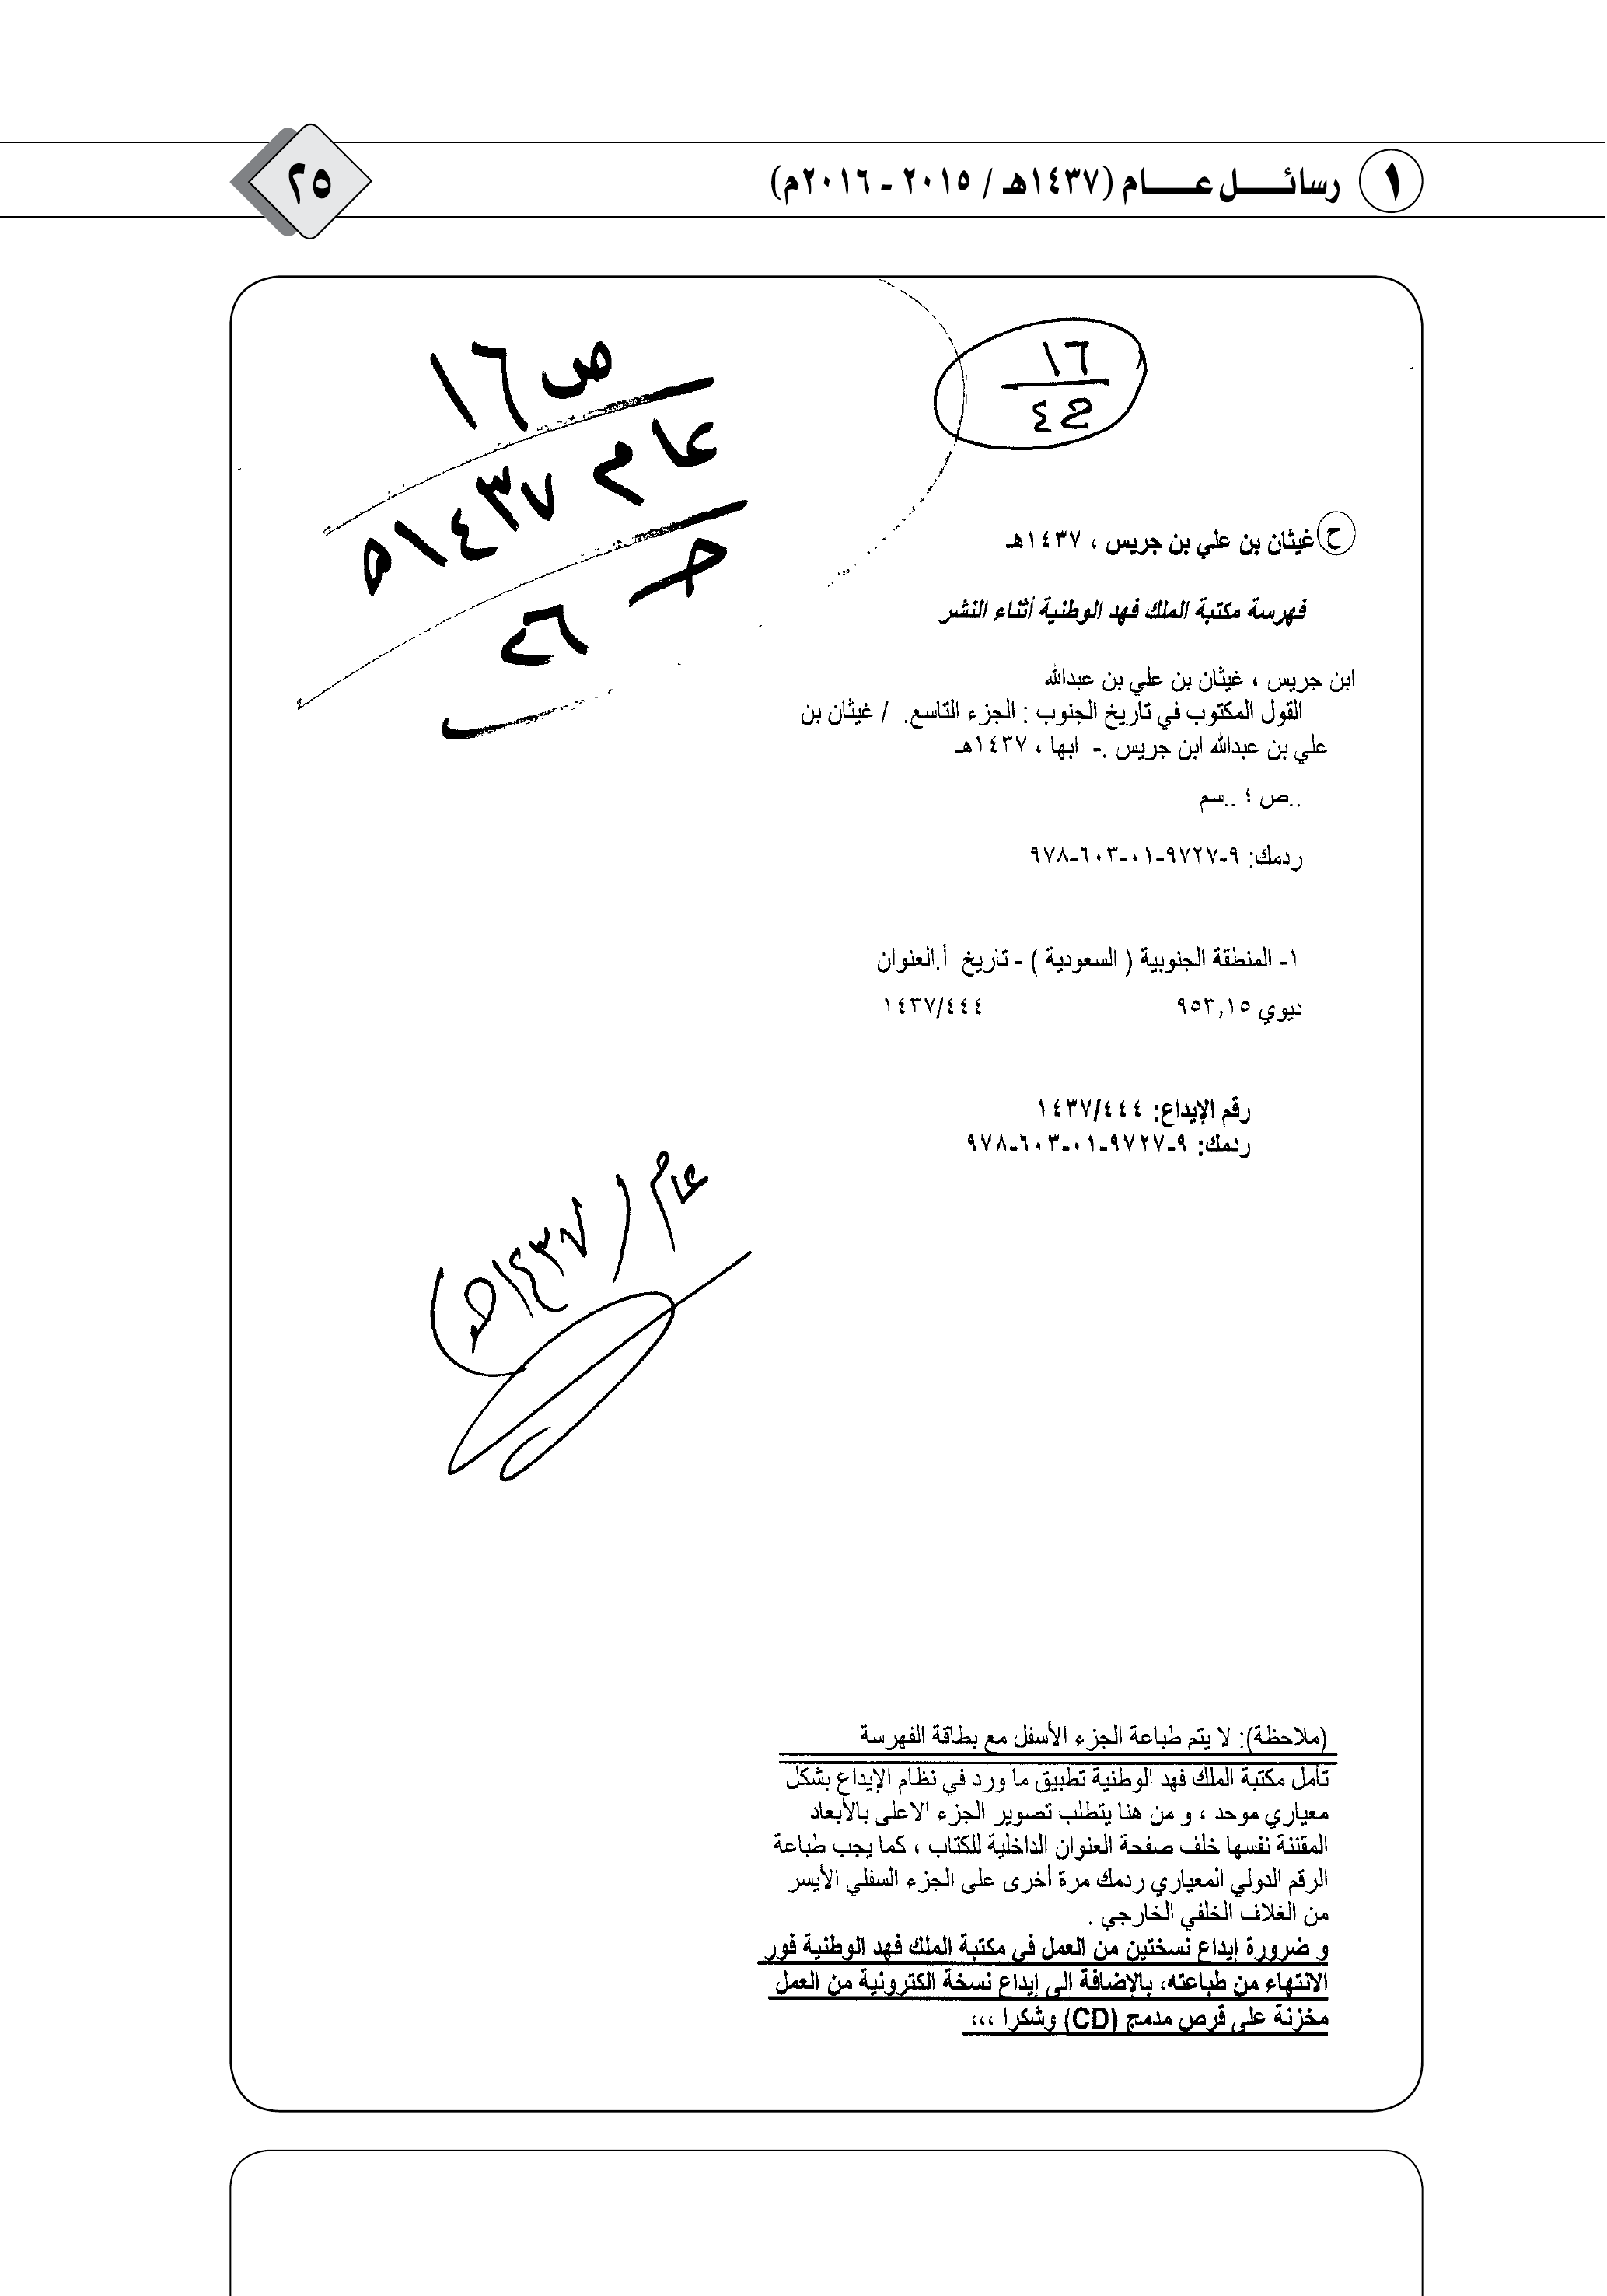 ١ رسائــل عــام (١٤٣٧هـ / ٢٠١٥ - ٢٠١٦م)
٢٥
١٦
ص ١٦
عام ١٤٣٧هـ
ح غيثان بن علي بن جريس ، ١٤٣٧هـ
فهرسة مكتبة الملك فهد الوطنية أثناء النشر
ابن جريس ، غيثان بن علي بن عبدالله
القول المكتوب في تاريخ الجنوب : الجزء التاسع. / غيثان بن
علي بن عبدالله ابن جريس .- ابها ، ١٤٣٧هـ
..ص ؛ ..سم
ردمك: ٩-٩٧٢٧-٠١-٦٠٣-٩٧٨
١- المنطقة الجنوبية ( السعودية ) - تاريخ أ.العنوان
ديوي ٩٥٣,١٥ ١٤٣٧/٤٤٤
رقم الإيداع: ١٤٣٧/٤٤٤
ردمك: ٩-٩٧٢٧-٠١-٦٠٣-٩٧٨
عام / ١٤٣٧هـ
(ملاحظة): لا يتم طباعة الجزء الأسفل مع بطاقة الفهرسة
تأمل مكتبة الملك فهد الوطنية تطبيق ما ورد في نظام الإيداع بشكل
معياري موحد ، و من هنا يتطلب تصوير الجزء الاعلى بالأبعاد
المقننة نفسها خلف صفحة العنوان الداخلية للكتاب ، كما يجب طباعة
الرقم الدولي المعياري ردمك مرة أخرى على الجزء السفلي الأيسر
من الغلاف الخلفي الخارجي .
و ضرورة إيداع نسختين من العمل في مكتبة الملك فهد الوطنية فور
الانتهاء من طباعته، بالإضافة الى إيداع نسخة الكترونية من العمل
مخزنة على قرص مدمج (CD) وشكرا ،،،